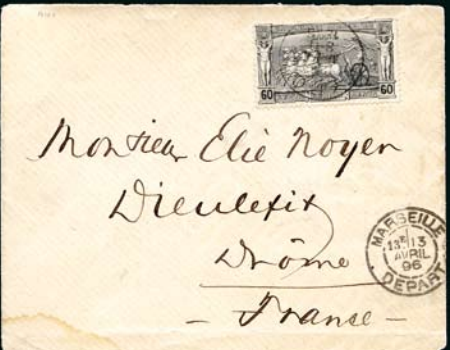 60 60
Monsieur Elie Noyer
Dieulefit
Drôme
- France -
MARSEILLE
13E 13
AVRIL
96
DEPART